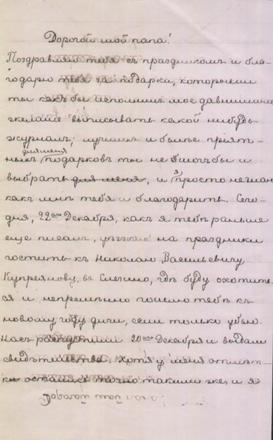 Дорогой мой папа!
Поздравляю тебя съ праздникомъ и бла-
годарю тебя за подарки, которыми
ты какъ бы исполнилъ мое давнишнее
желаніе выписывать какой нибудь
журналъ; лучшихъ и болѣе пріят-
ныхъ подарковъ ты не могъ бы
выбрать для меня, и я просто не знаю
какъ мнѣ тебя и благодарить. Сего-
дня, 22го Декабря, какъ я тебѣ раньше
еще писалъ, уѣзжаю на праздники
гостить къ Николаю Васильевичу
Купреянову, въ гдѣ буду охотить-
ся и непремѣнно пошлю тебѣ къ
новому году дичи, если только убью.
Насъ распустили 20го Декабря и выдали
свидѣтельства. Хотя у меня отмѣт-
ки остались точно такими же, и я